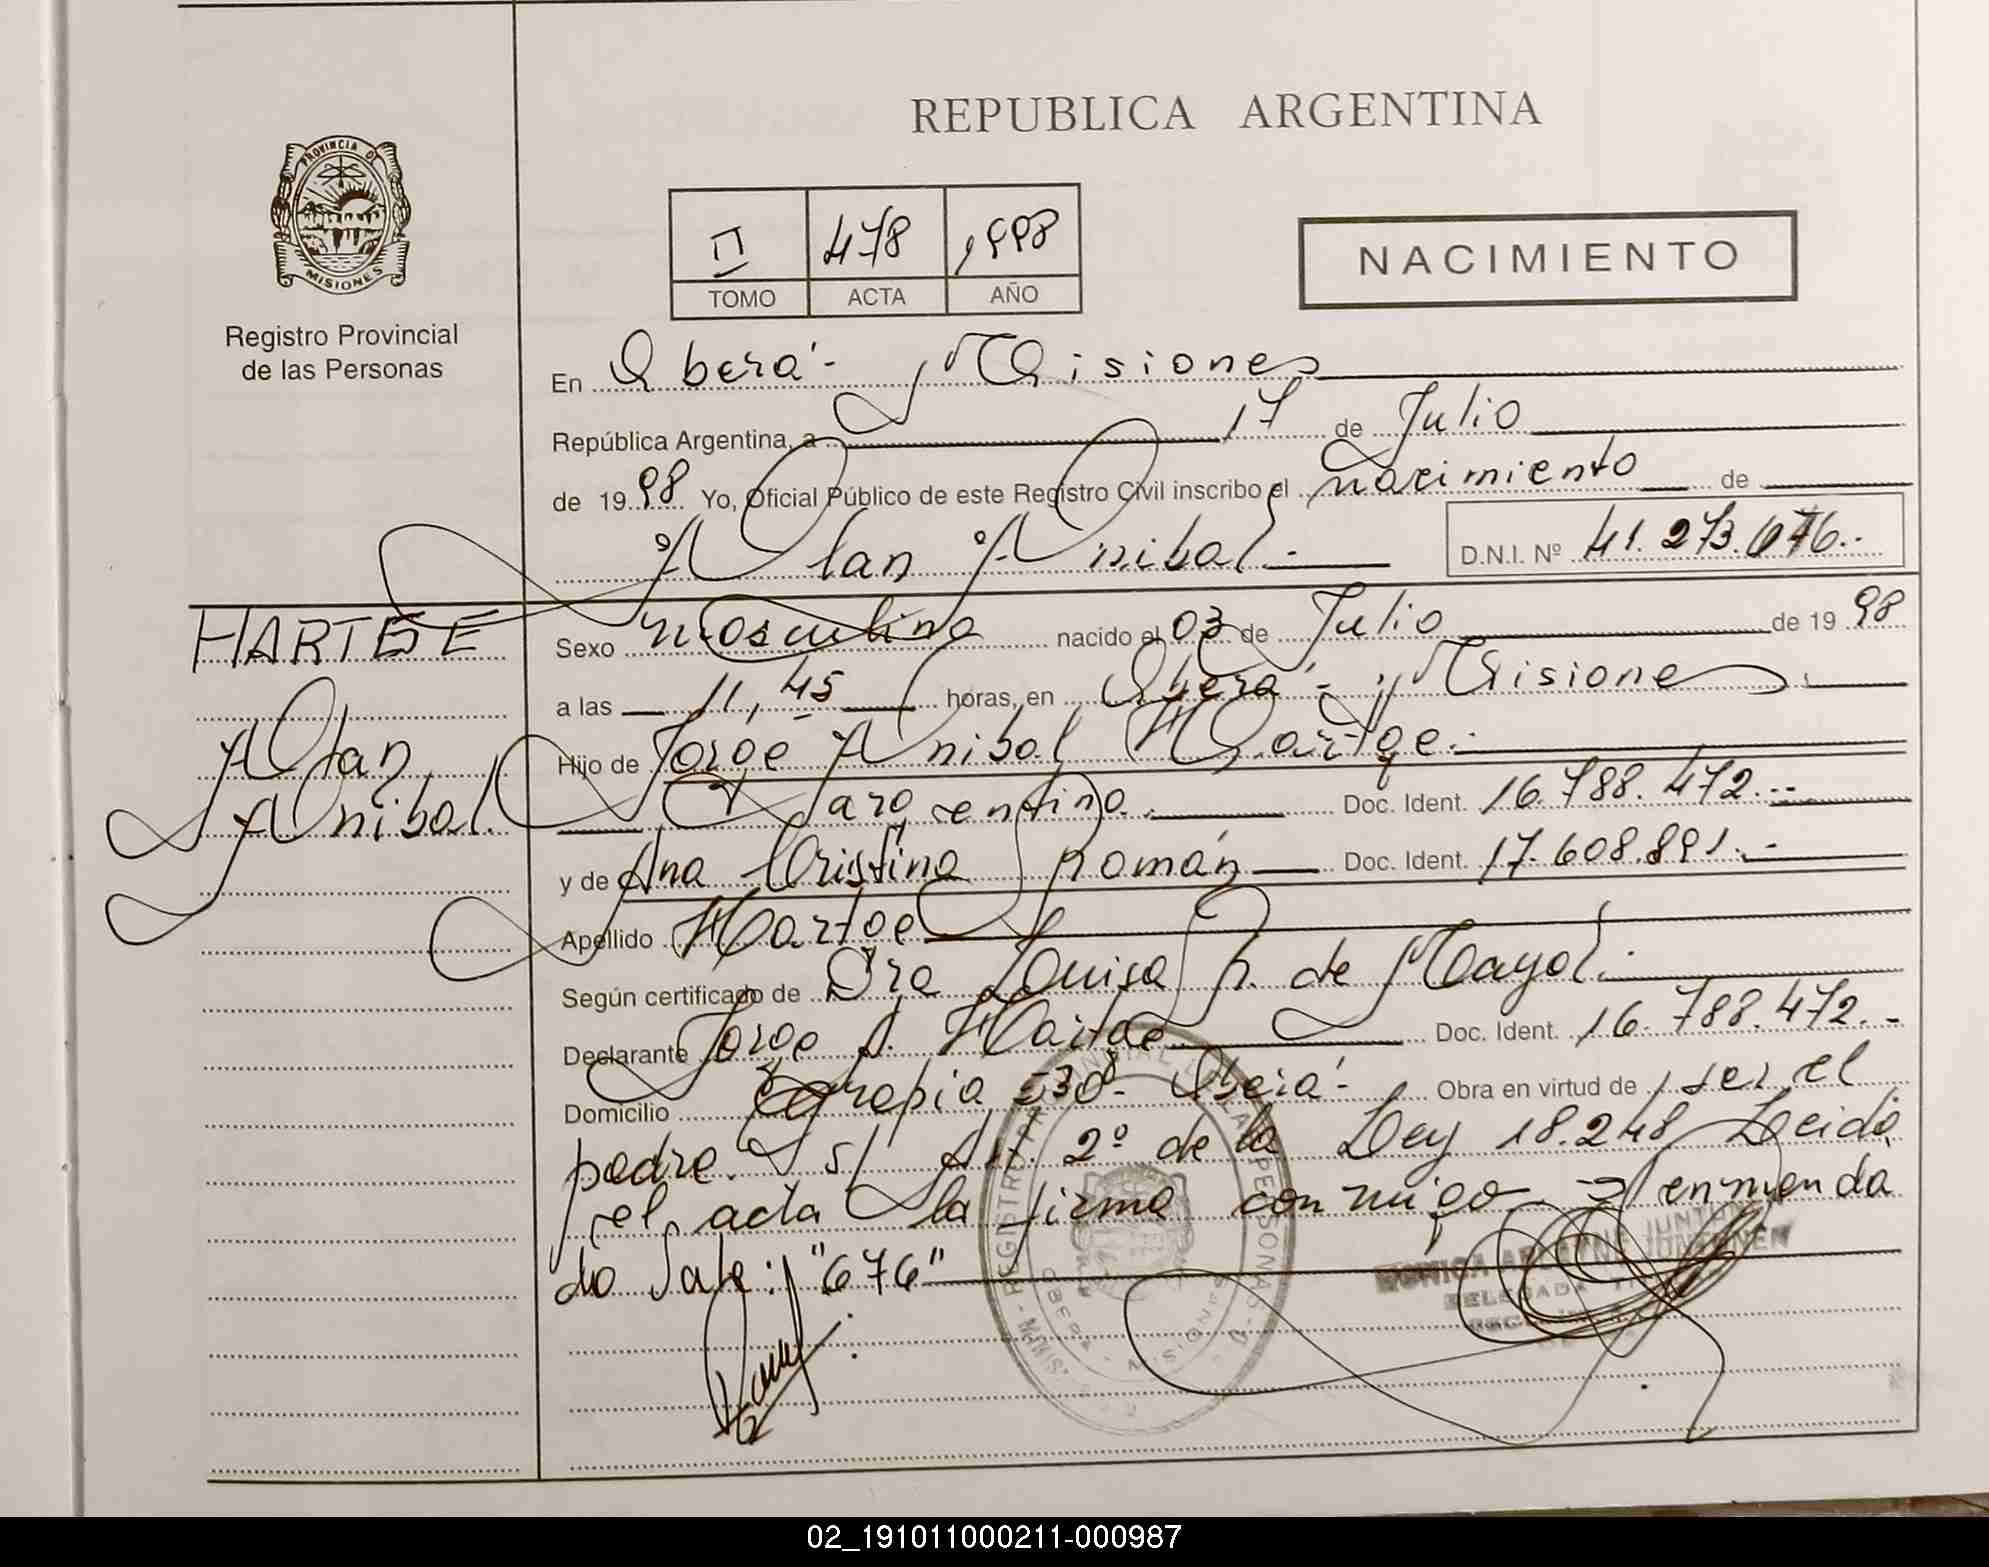 REPUBLICA ARGENTINA
PROVINCIA DE
MISIONES
Registro Provincial
de las Personas
II 478 1998
TOMO ACTA AÑO
NACIMIENTO
En Oberá - Misiones
República Argentina, a 17 de Julio
de 1998 Yo, Oficial Público de este Registro Civil inscribo el nacimiento de
Alan Anibal.-
D.N.I. Nº 41.273.676.-
HARTGE
Alan
Anibal.
Sexo masculino nacido el 03 de Julio de 1998
a las 11,45 horas, en Oberá - Misiones.
Hijo de Jorge Anibal Hartge.-
argentino. Doc. Ident. 16.788.472.--
y de Ana Cristina Román Doc. Ident. 17.608.891.-
Apellido Hartge
Según certificado de Dra Louisa R. de Mayol.-
Declarante Jorge A. Hartge Doc. Ident. 16.788.472.-
Domicilio Oberá - Obra en virtud de ser el
padre. s/ Art. 2º de la Ley 18.248 Leida
el acta la firma conmigo enmenda
do Vale: "676"
REGISTRO PERSONAS
OBERA - MISIONES
DELEGADA
02_191011000211-000987